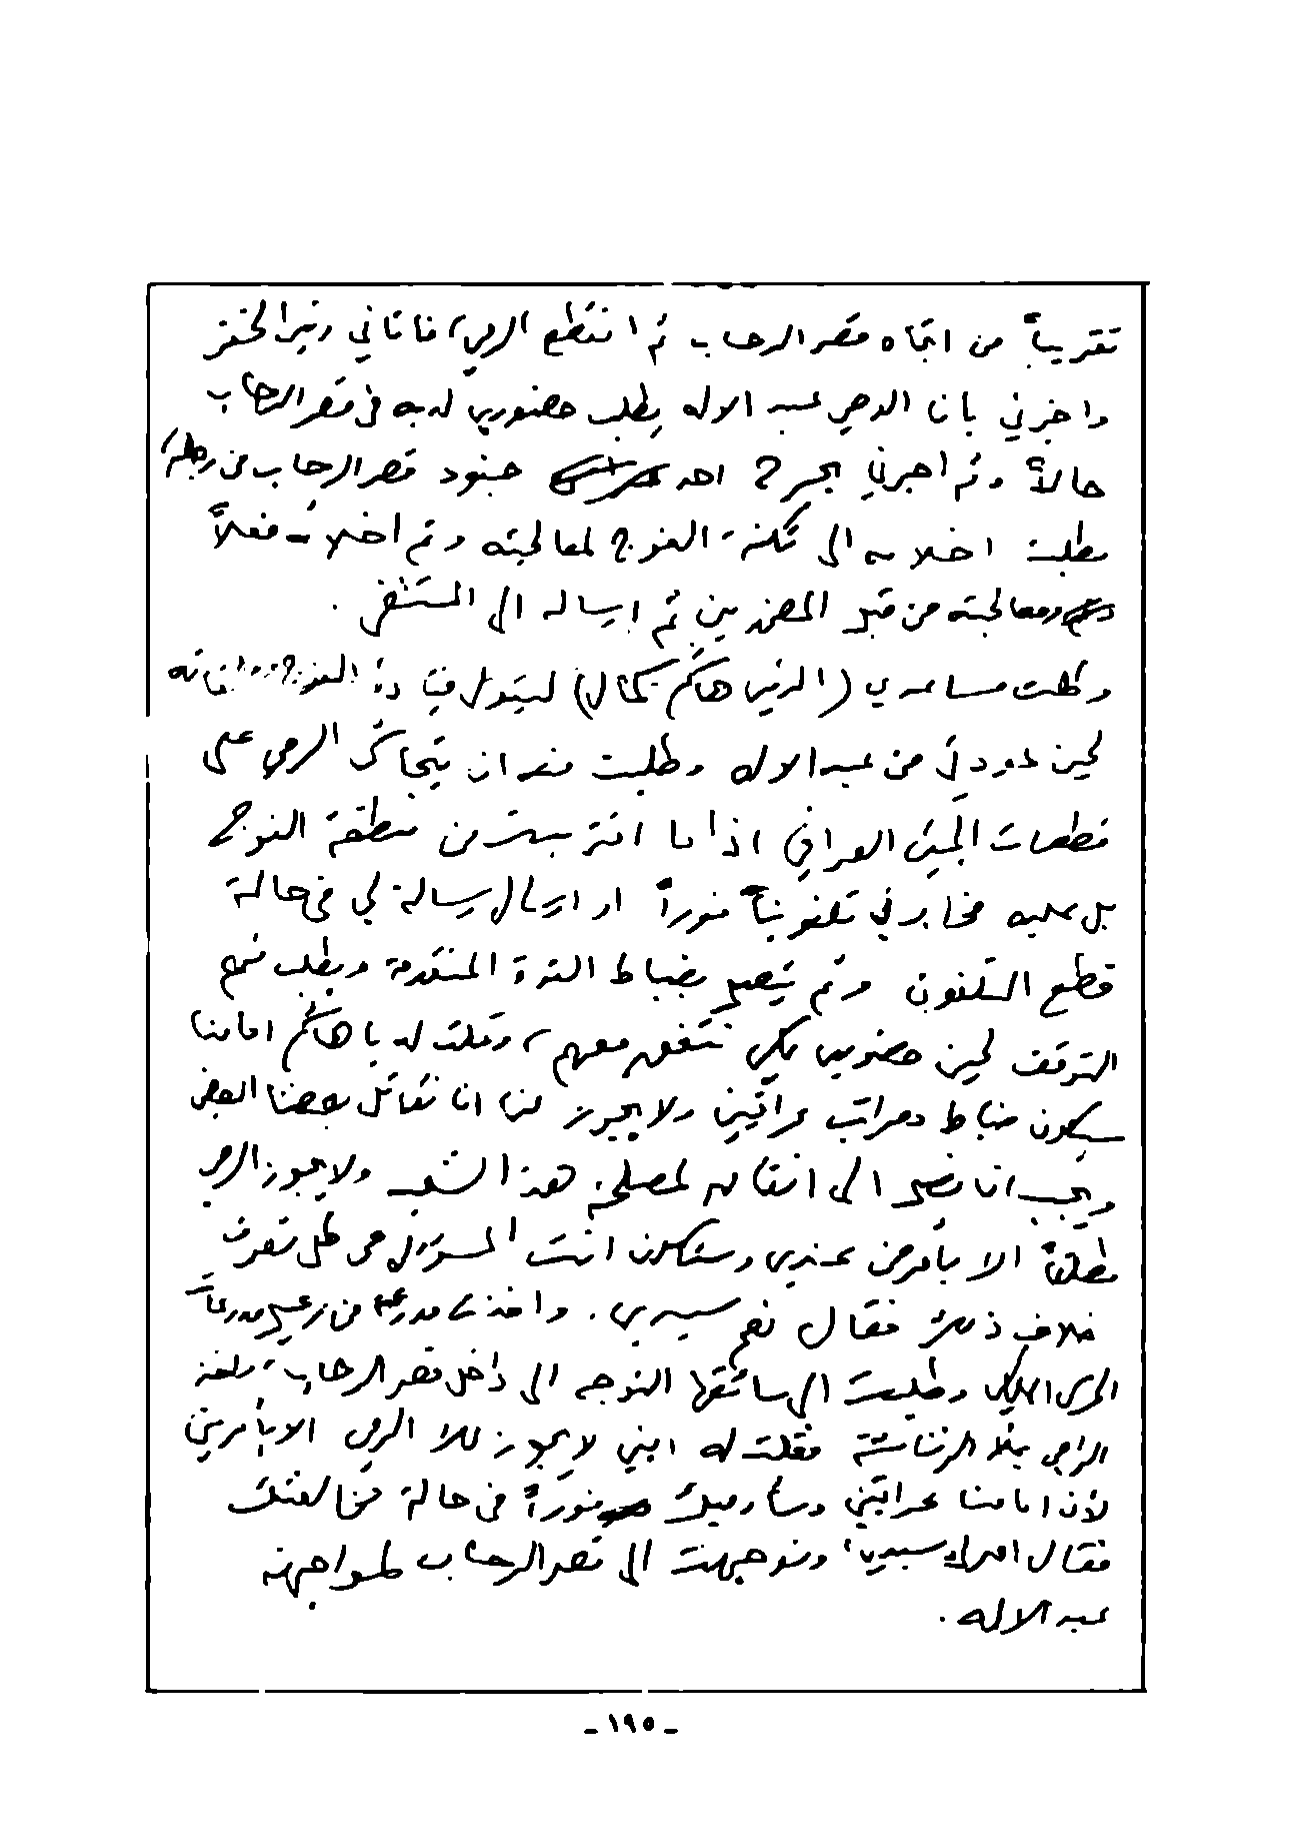 تقريباً من اتجاه قصر الرحاب ثم انقطع الرمي، فاتاني رئيس الخفر
واخبرني بان الوصي عبد الاله يطلب حضوري لديه في قصر الرحاب
حالاً وتم اخبرني بجرح احد جنود قصر الرحاب من رجله،
طلبت اخلاءه الى ثكنة الفوج لمعالجته وتم اخلائه فعلاً
ومعالجته من قبل المضمدين ثم ارساله الى المستشفى .
وكلت مساعدي (الرئيس هاشم كمال) ليتولى قيادة الفوج
لحين عودتي من عبد الاله وطلبت منه ان يتحاشى الرمي على
قطعات الجيش العراقي اذا ما اقتربت من منطقة الفوج
بل عليه مخابرتي تلفونياً فوراً او ارسال رسالة لي في حالة
قطع التلفون وثم يتصل بضباط القوة المتقدمة ويطلب منهم
التوقف لحين حضوري لكي نتفق معهم، وقلت له يا هاشم امامنا
سيكون ضباط ومراتب عراقيين ولا يجوز لنا ان نقاتل بعضنا البعض
ويجب ان نصل الى اتفاق لمصلحة هذا الشعب ولا يجوز الرمي
مطلقاً الا بأمر من عندي وستكون انت المسؤول عن كل تصرف
خلاف ذلك فقال نعم سيدي . واخذت مدرعة من رعيل مدرعات
الحرس الملكي وطلبت الى سائقها التوجه الى داخل قصر الرحاب، ولقنه
الرامي بملأ الرشاشة فقلت له ابني لا يجوز لك الرمي الا بأمر مني
لأن امامنا عراقيين وسأرميك فوراً في حالة مخالفتك
فقال امرك سيدي، وتوجهت الى قصر الرحاب لمواجهة
عبد الاله .
- ١٩٥ -